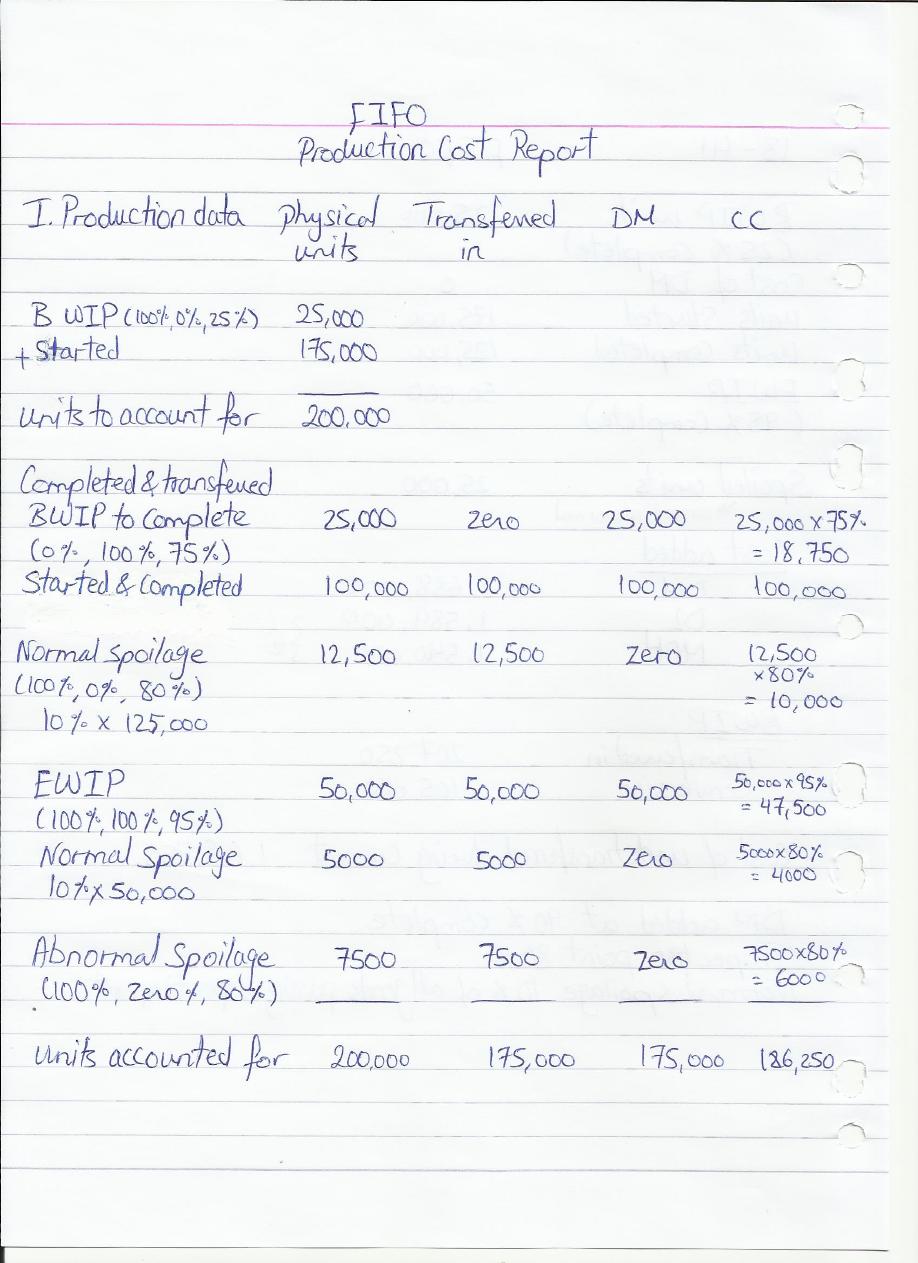 FIFO
Production Cost Report
I. Production data physical units Transferred in DM CC
B WIP (100%, 0%, 25%) 25,000
+ Started 175,000
units to account for 200,000
Completed & transferred
BWIP to Complete 25,000 zero 25,000 25,000 x 75%
(0%, 100%, 75%) = 18,750
Started & Completed 100,000 100,000 100,000 100,000
Normal Spoilage 12,500 12,500 zero 12,500
(100%, 0%, 80%) x 80%
= 10,000
10% x 125,000
EWIP 50,000 50,000 50,000 50,000 x 95%
(100%, 100%, 95%) = 47,500
Normal Spoilage 5000 5000 Zero 5000 x 80%
10% x 50,000 = 4000
Abnormal Spoilage 7500 7500 Zero 7500 x 80%
(100%, Zero%, 80%) = 6000
units accounted for 200,000 175,000 175,000 186,250